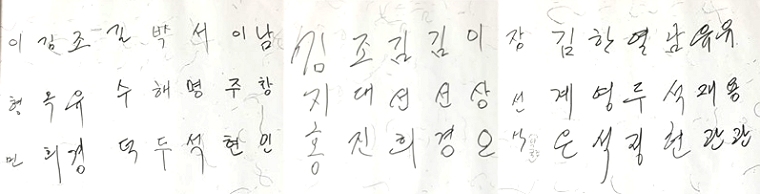 이형민
김옥희
조유경
김수덕
박해두
서명석
이주현
남창인
김지홍
조대진
김선희
김선경
이상오
장선
김계은
한영석
두
남석현
유재관
유용관